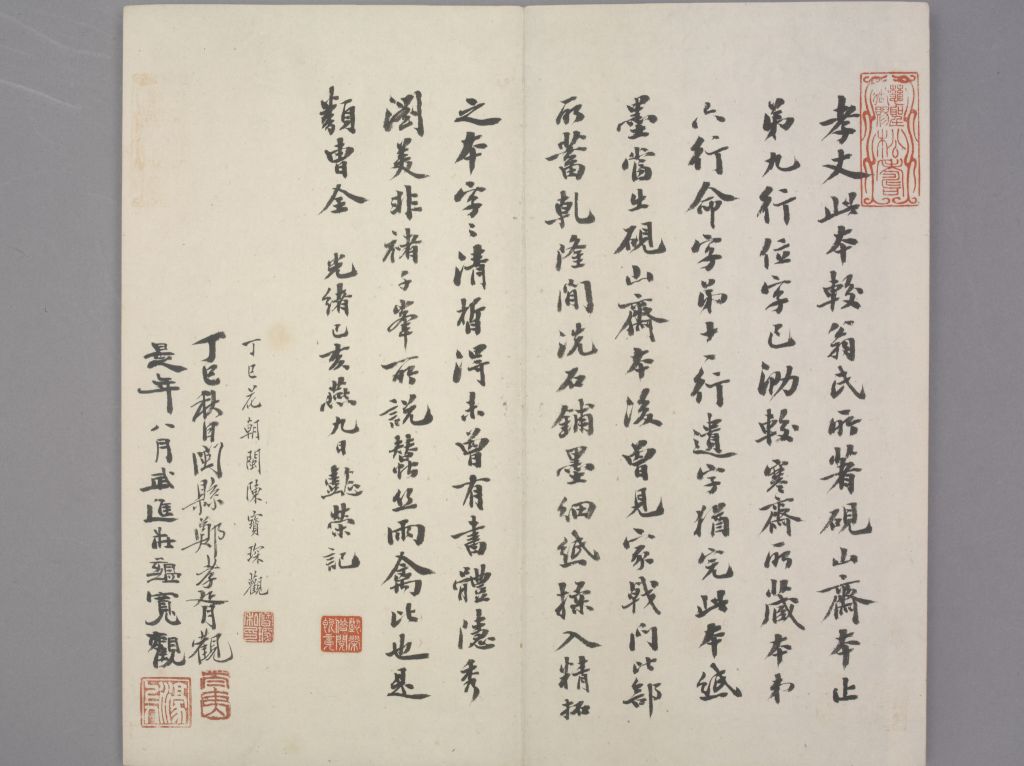 孝丈此本較翁氏所著硯山齋本止
第九行位字已泐較寒齋所藏本弟
六行命字第十一行遺字猶完此本紙
墨當出硯山齋本後曾見家戟門比部
所蓄乾隆間洗石鋪墨細紙揉入精拓
之本字〻清晳淂未曾有書體
澍美非褚千峯所說
類曹全 光緒己亥燕九日懿榮記
丁巳花朝閩陳寶琛觀
丁巳秋日閩縣鄭孝胥觀
是年八月武進莊蘊寬觀